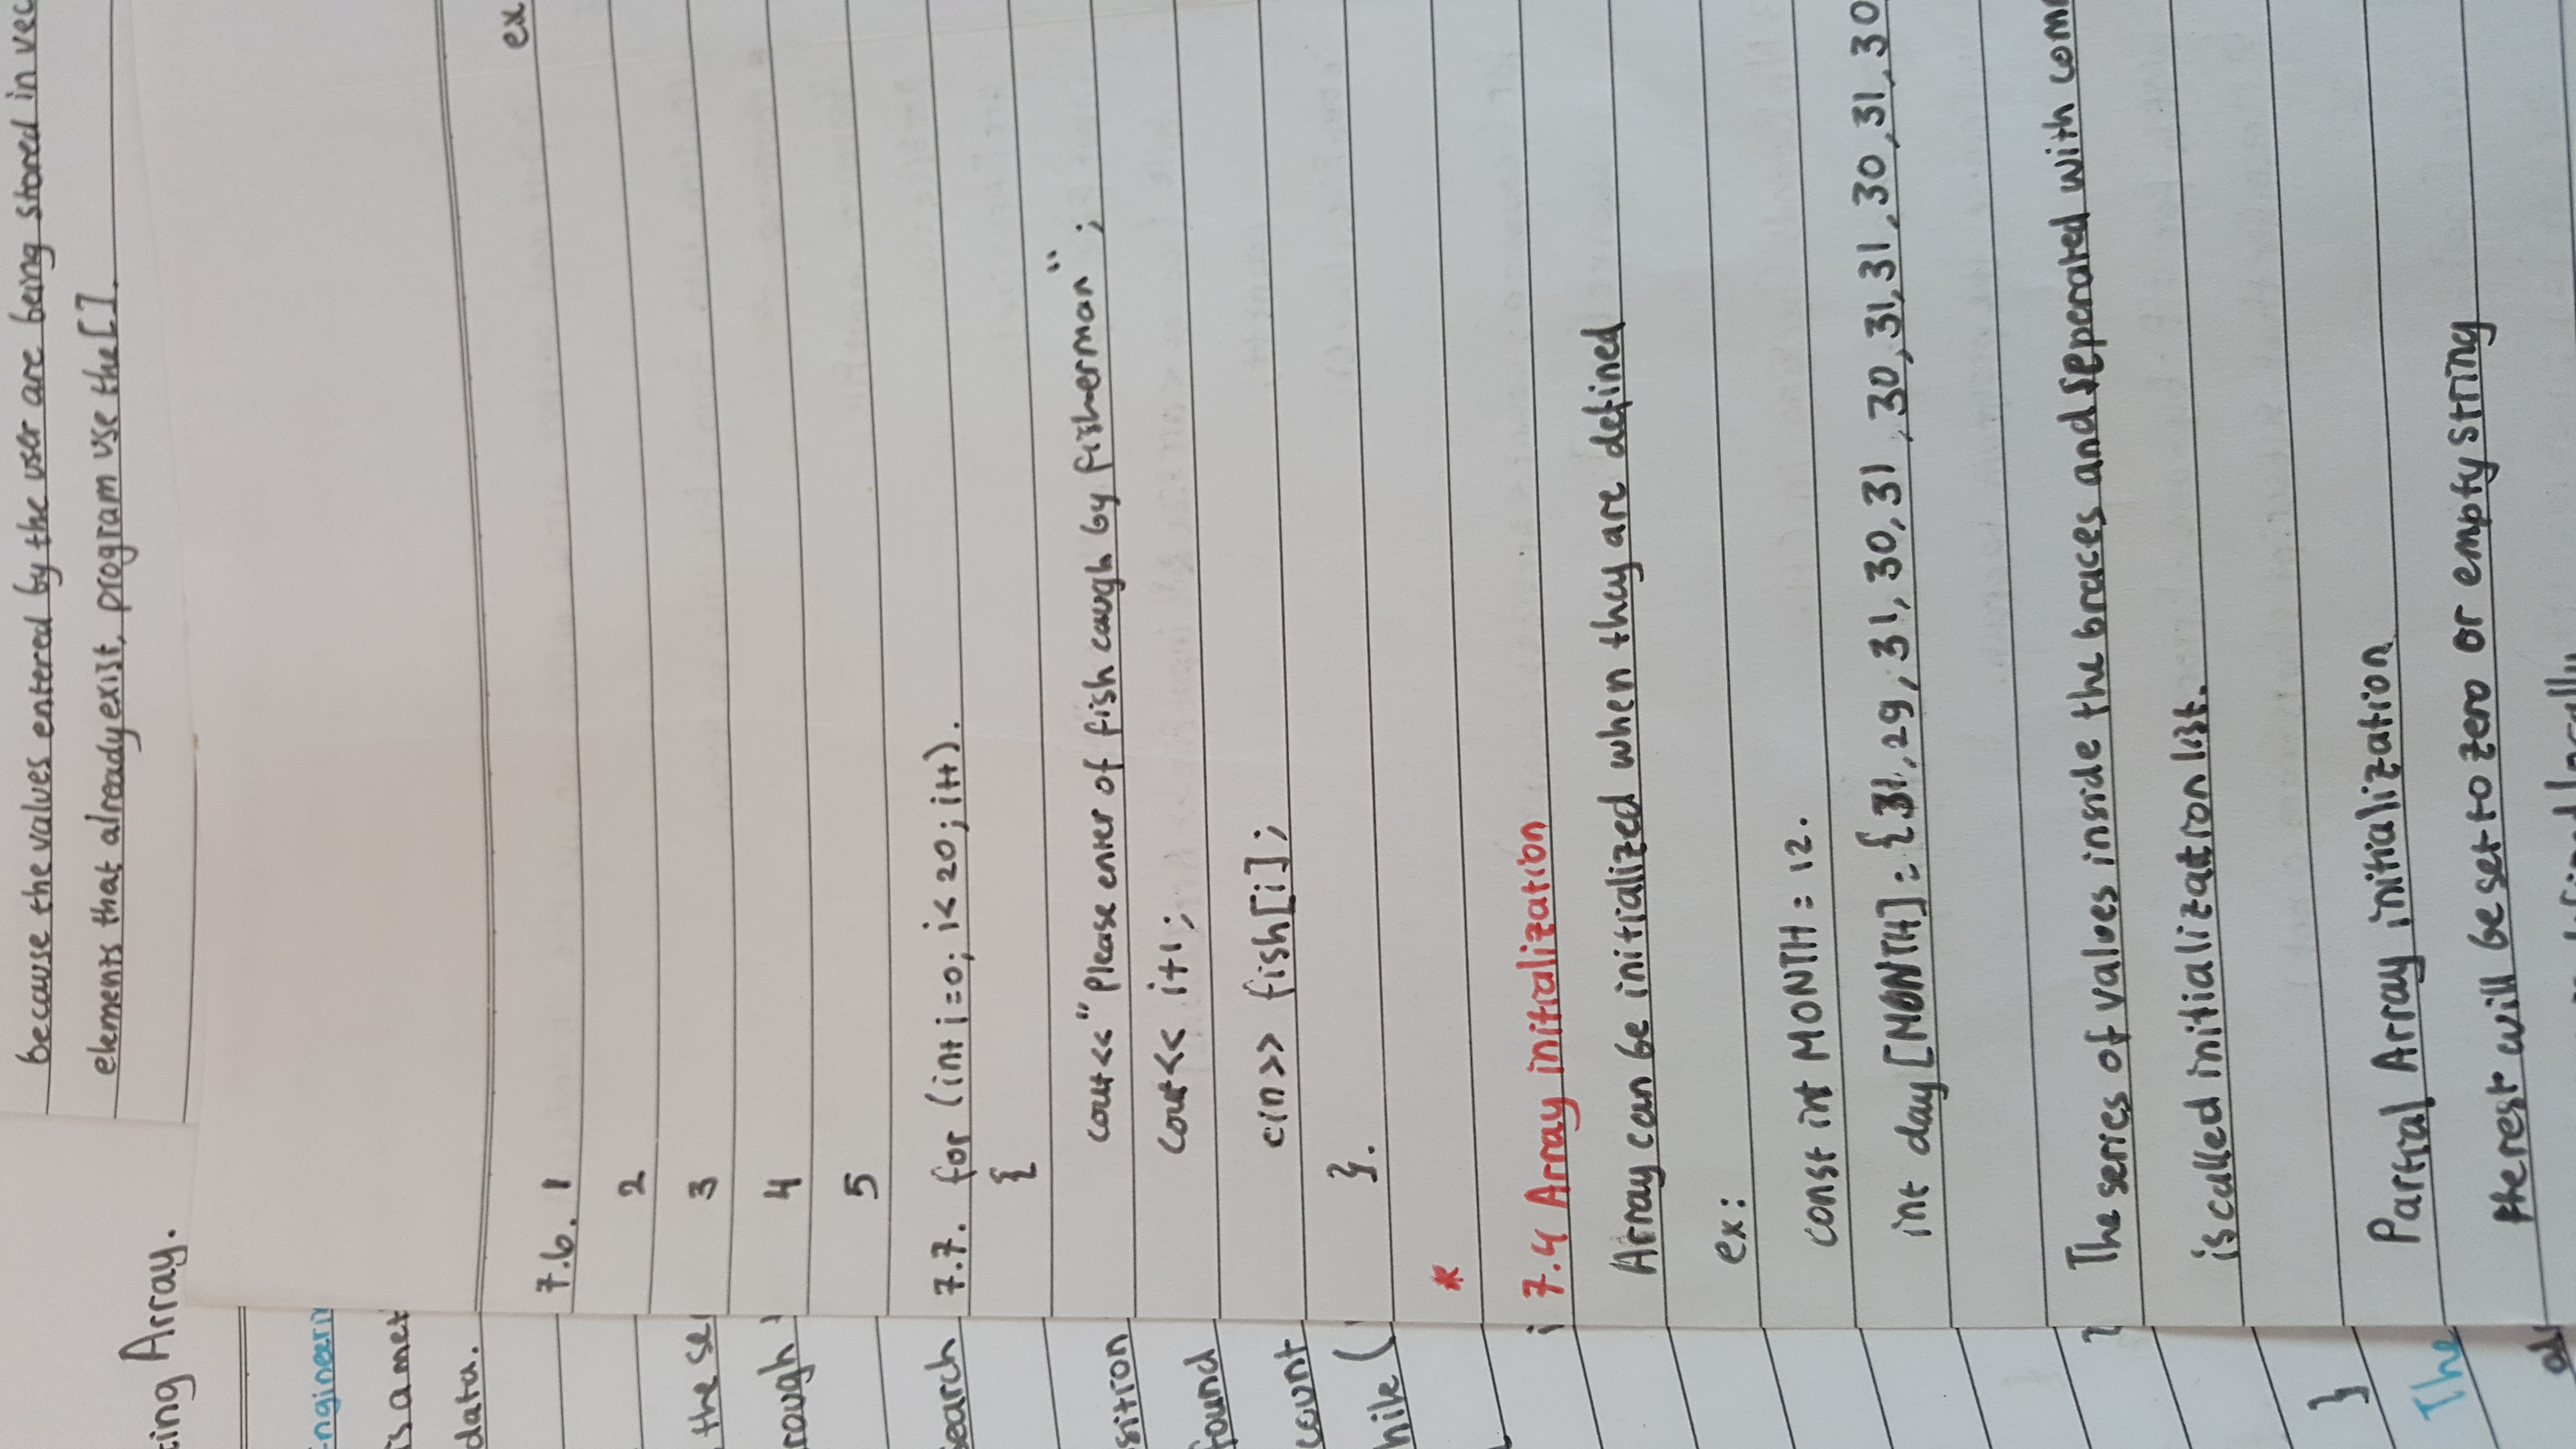 because the values entered by the user are being stored in vec
elements that already exist, program use the [].
ting Array.
Engineerin
is a met
data.
the se
rough
search
sition
found
count
hile (
}
The
ex
7.6. 1
2
3
4
5
7.7. for (int i=0; i<20; i++).
{
cout<<"Please enter of fish caugh by fisherman";
cout<< i+1;
cin>> fish[i];
}.
*
7.4 Array initialization
Array can be initialized when they are defined
ex:
const int MONTH = 12.
int day [MONTH] = {31, 29, 31, 30, 31, 30, 31, 31, 30, 31, 30
The series of values inside the braces and seperated with com
is called initialization list.
Partial Array initialization
the rest will be set to zero or empty string
locally